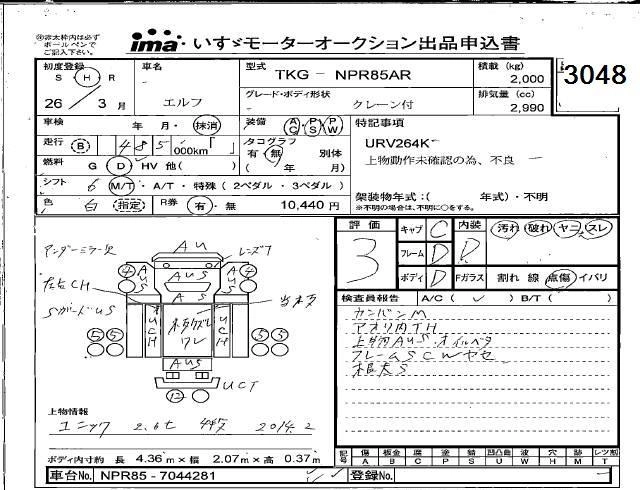 ※非太枠内は必ず
ボールペンで
ご記入下さい。
ima いすゞモーターオークション出品申込書
3048
初度登録
S H R
26 / 3 月
車名
エルフ
型式 TKG - NPR85AR
積載 (kg)
2,000
グレード・ボディ形状
クレーン付
排気量 (cc)
2,990
車検 年 月・抹消
装備 AC PS PW
特記事項
URV264K
上物動作未確認の為、不良
走行 B 485 000km
タコグラフ
有・無 別体
燃料 G D HV 他( )
( 年/ )
シフト 6 M/T・A/T・特殊 ( 2ペダル・3ペダル )
架装物年式:( 年式)・不明
※不明の場合は、不明に○をする。
色 白 指定 R券 有・無 10,440 円
評価 3
キャブ C
フレーム D
ボディ D
内装 D
汚れ 破れ ヤニ スレ
Fガラス 割れ 線 点傷 イバリ
検査員報告 A/C ( ✓ ) B/T ( )
カンバンM
アオリ内TH
上物AUS オイルベタ
フレームSCWヤセ
根太S
アンダーミラー欠
レンズワ
左右CH
SガードUS
AU
AUS
AUS
AUS
AUS
UCH
UCH
木タクズレ
ワレ
AUS
UCT
4 4
5 5 5 5
12
上物情報
ユニック 2.6t 4段 2014.2
ボディ内寸約 長 4.36m×幅 2.07m×高 0.37m
記号 傷 板金 腐 塗 錆 凹凸曲 波 穴 跡 レツ割
A B C P S U W H M T
車台No. NPR85 - 7044281
登録No.